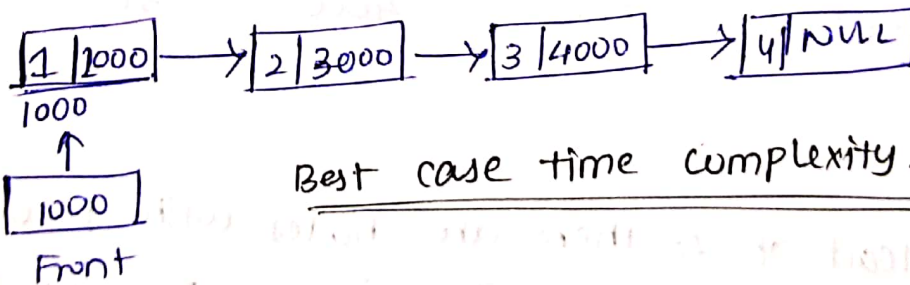 1 1000 2 3000 3 4000 4 NULL
1000
1000 Best case time complexity.
Front